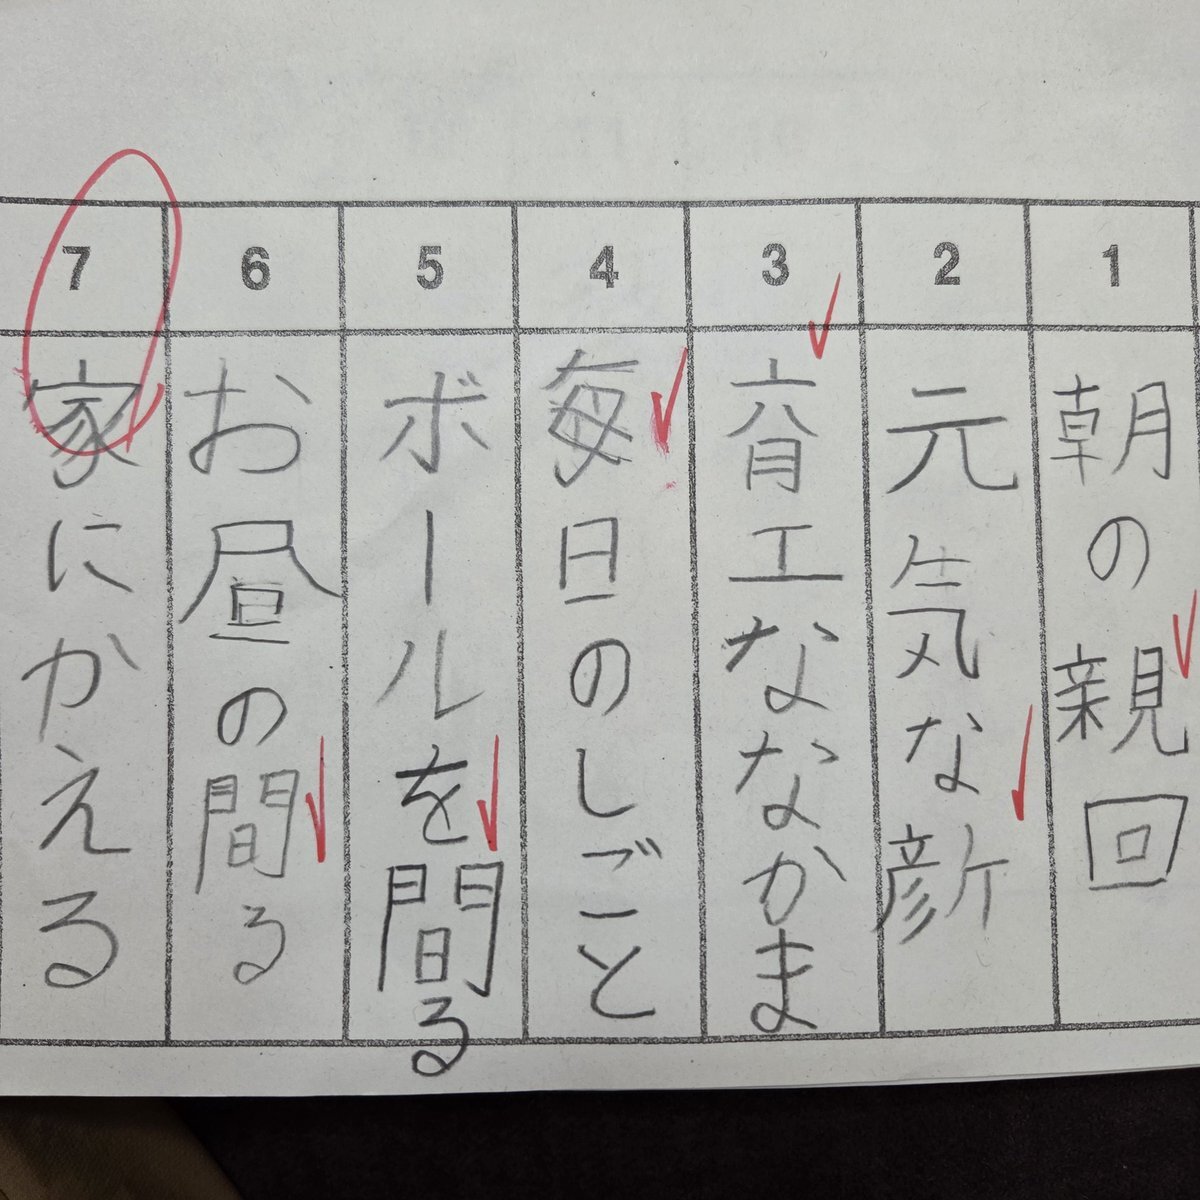 1
朝の親回
2
元気な
3
育工ななかま
4
毎日のしごと
5
ボールを間る
6
お昼の間る
7
家にかえる